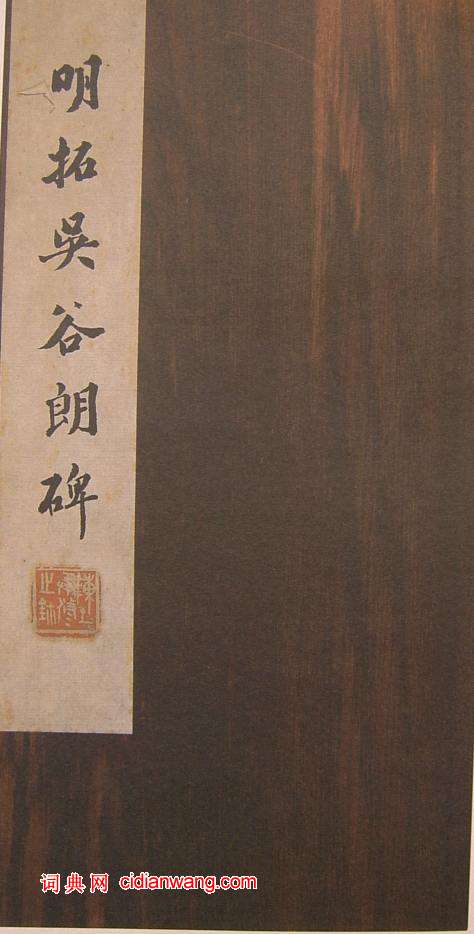 明拓吳谷朗碑
词典网 cidianwang.com